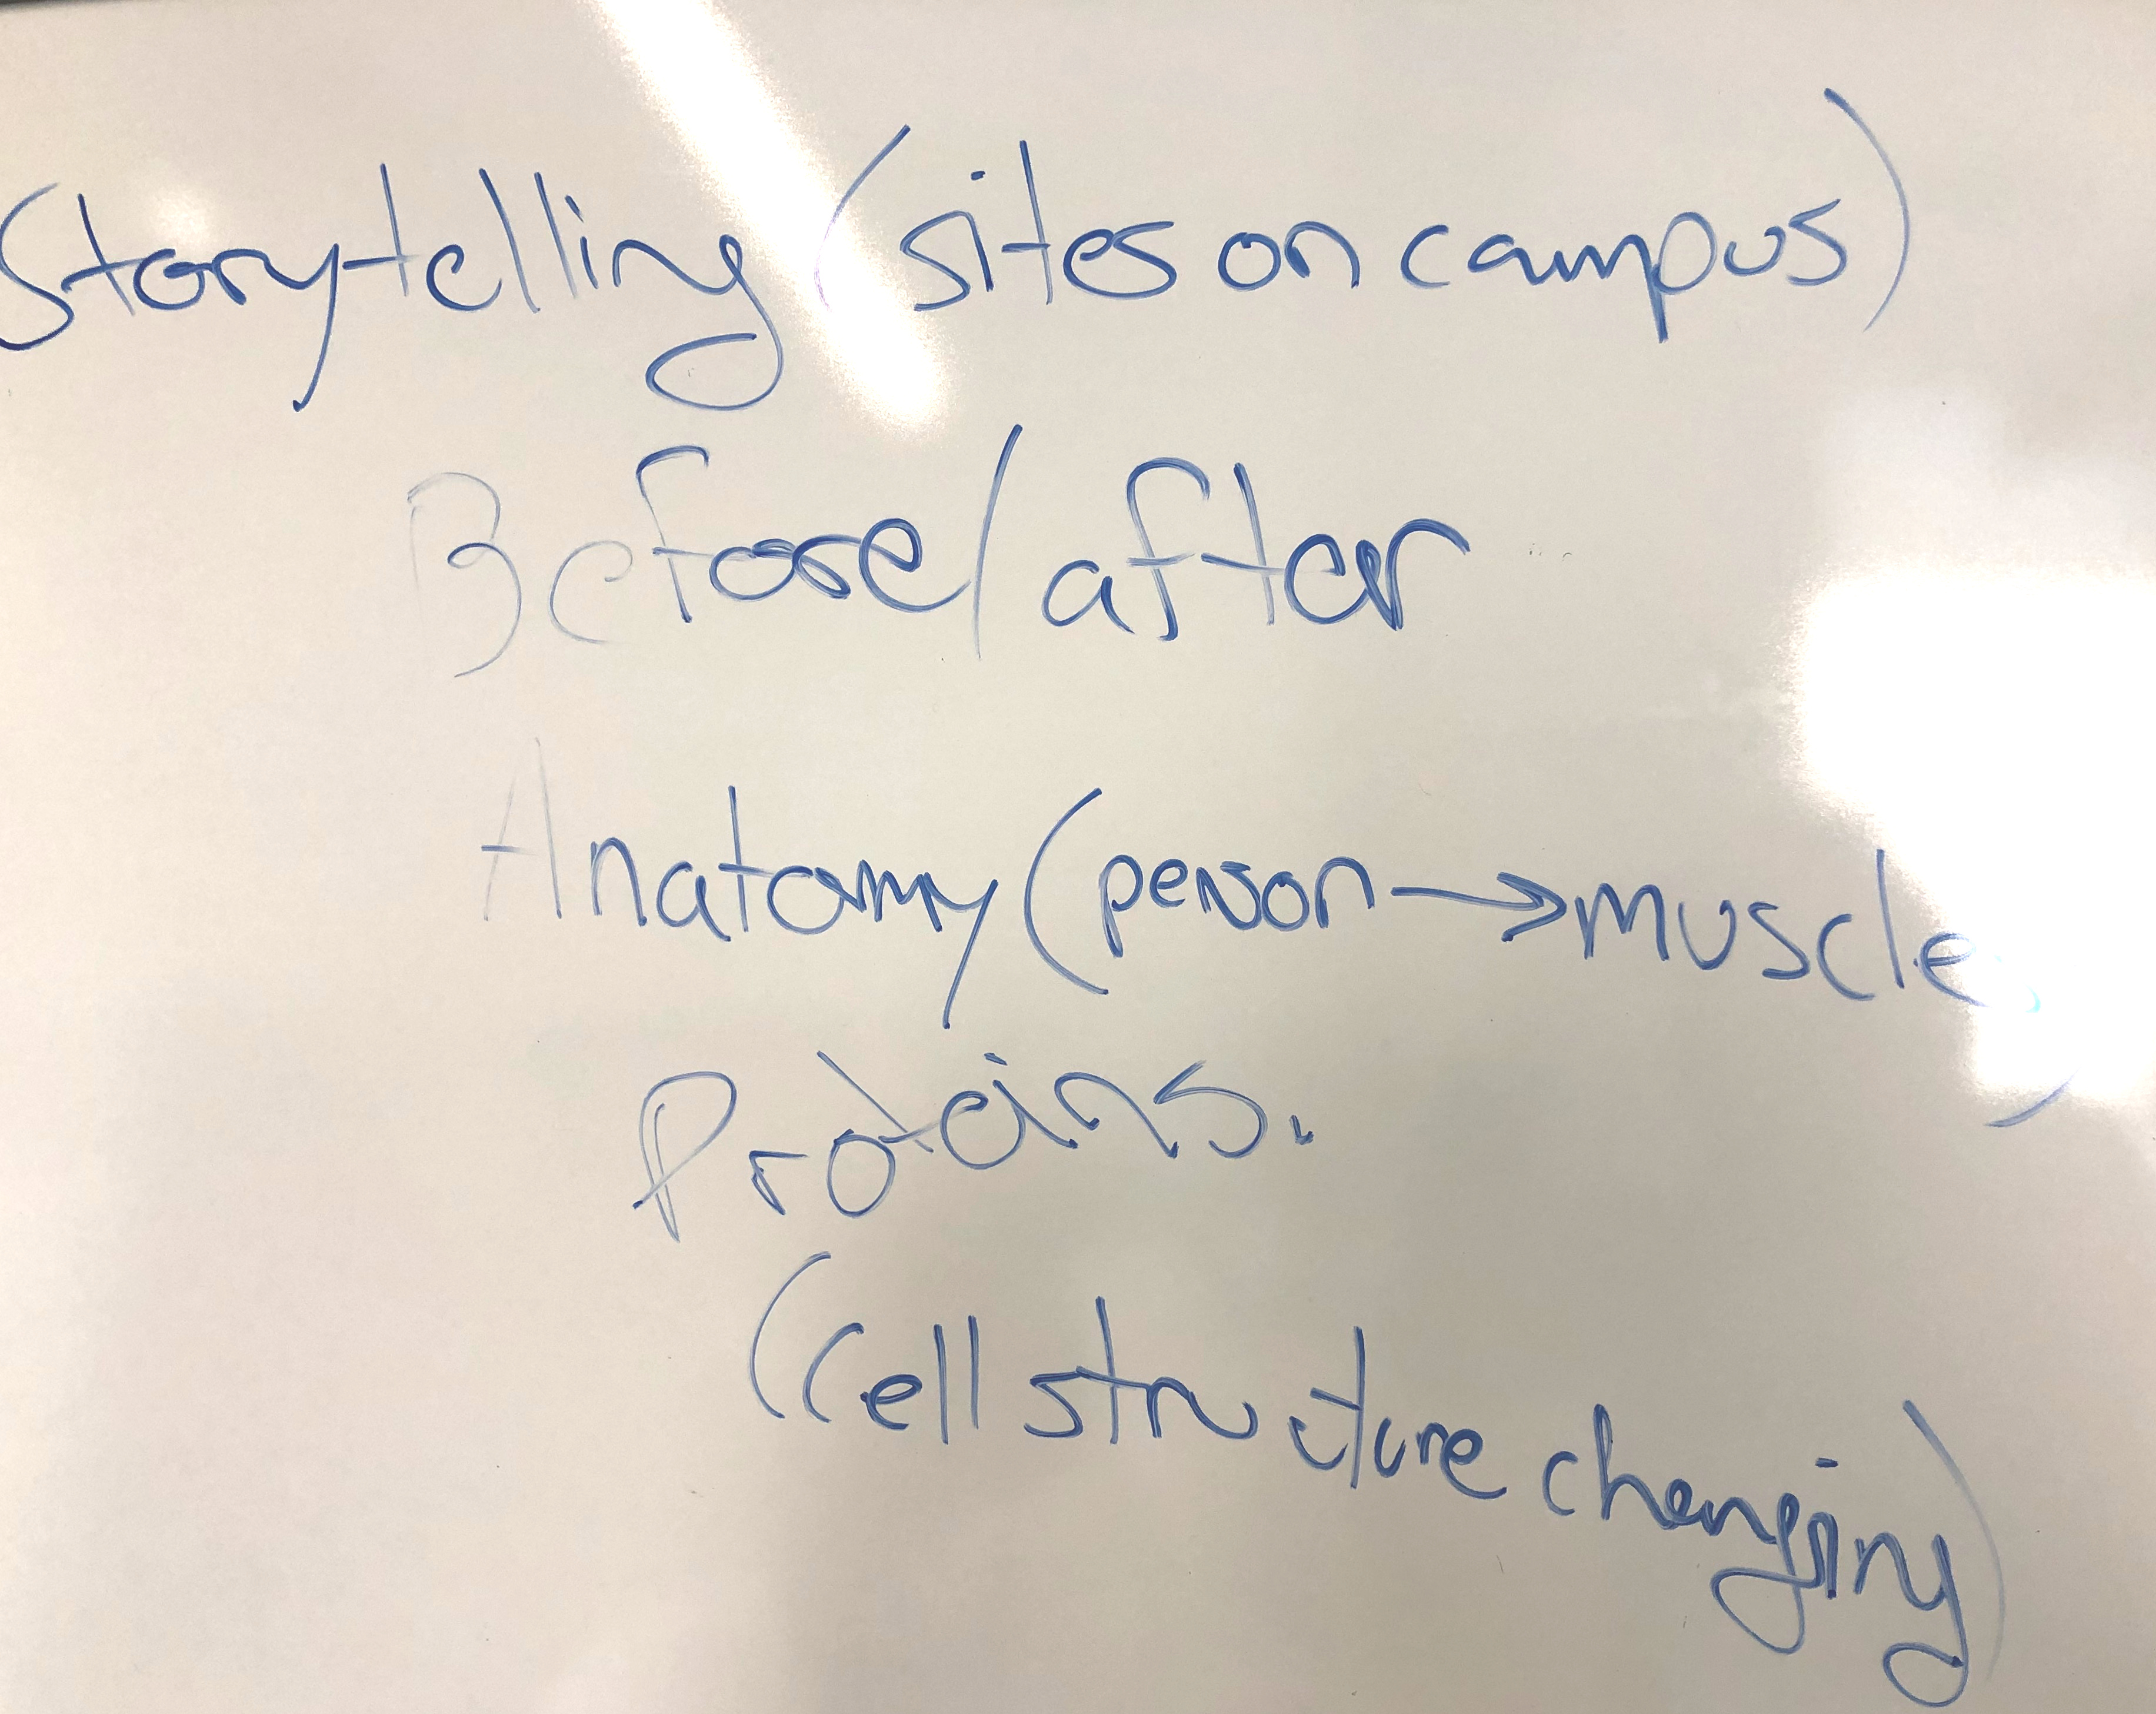 Storytelling (sites on campus)
Before/after
Anatomy (person → muscles)
Proteins.
(Cell structure changing)